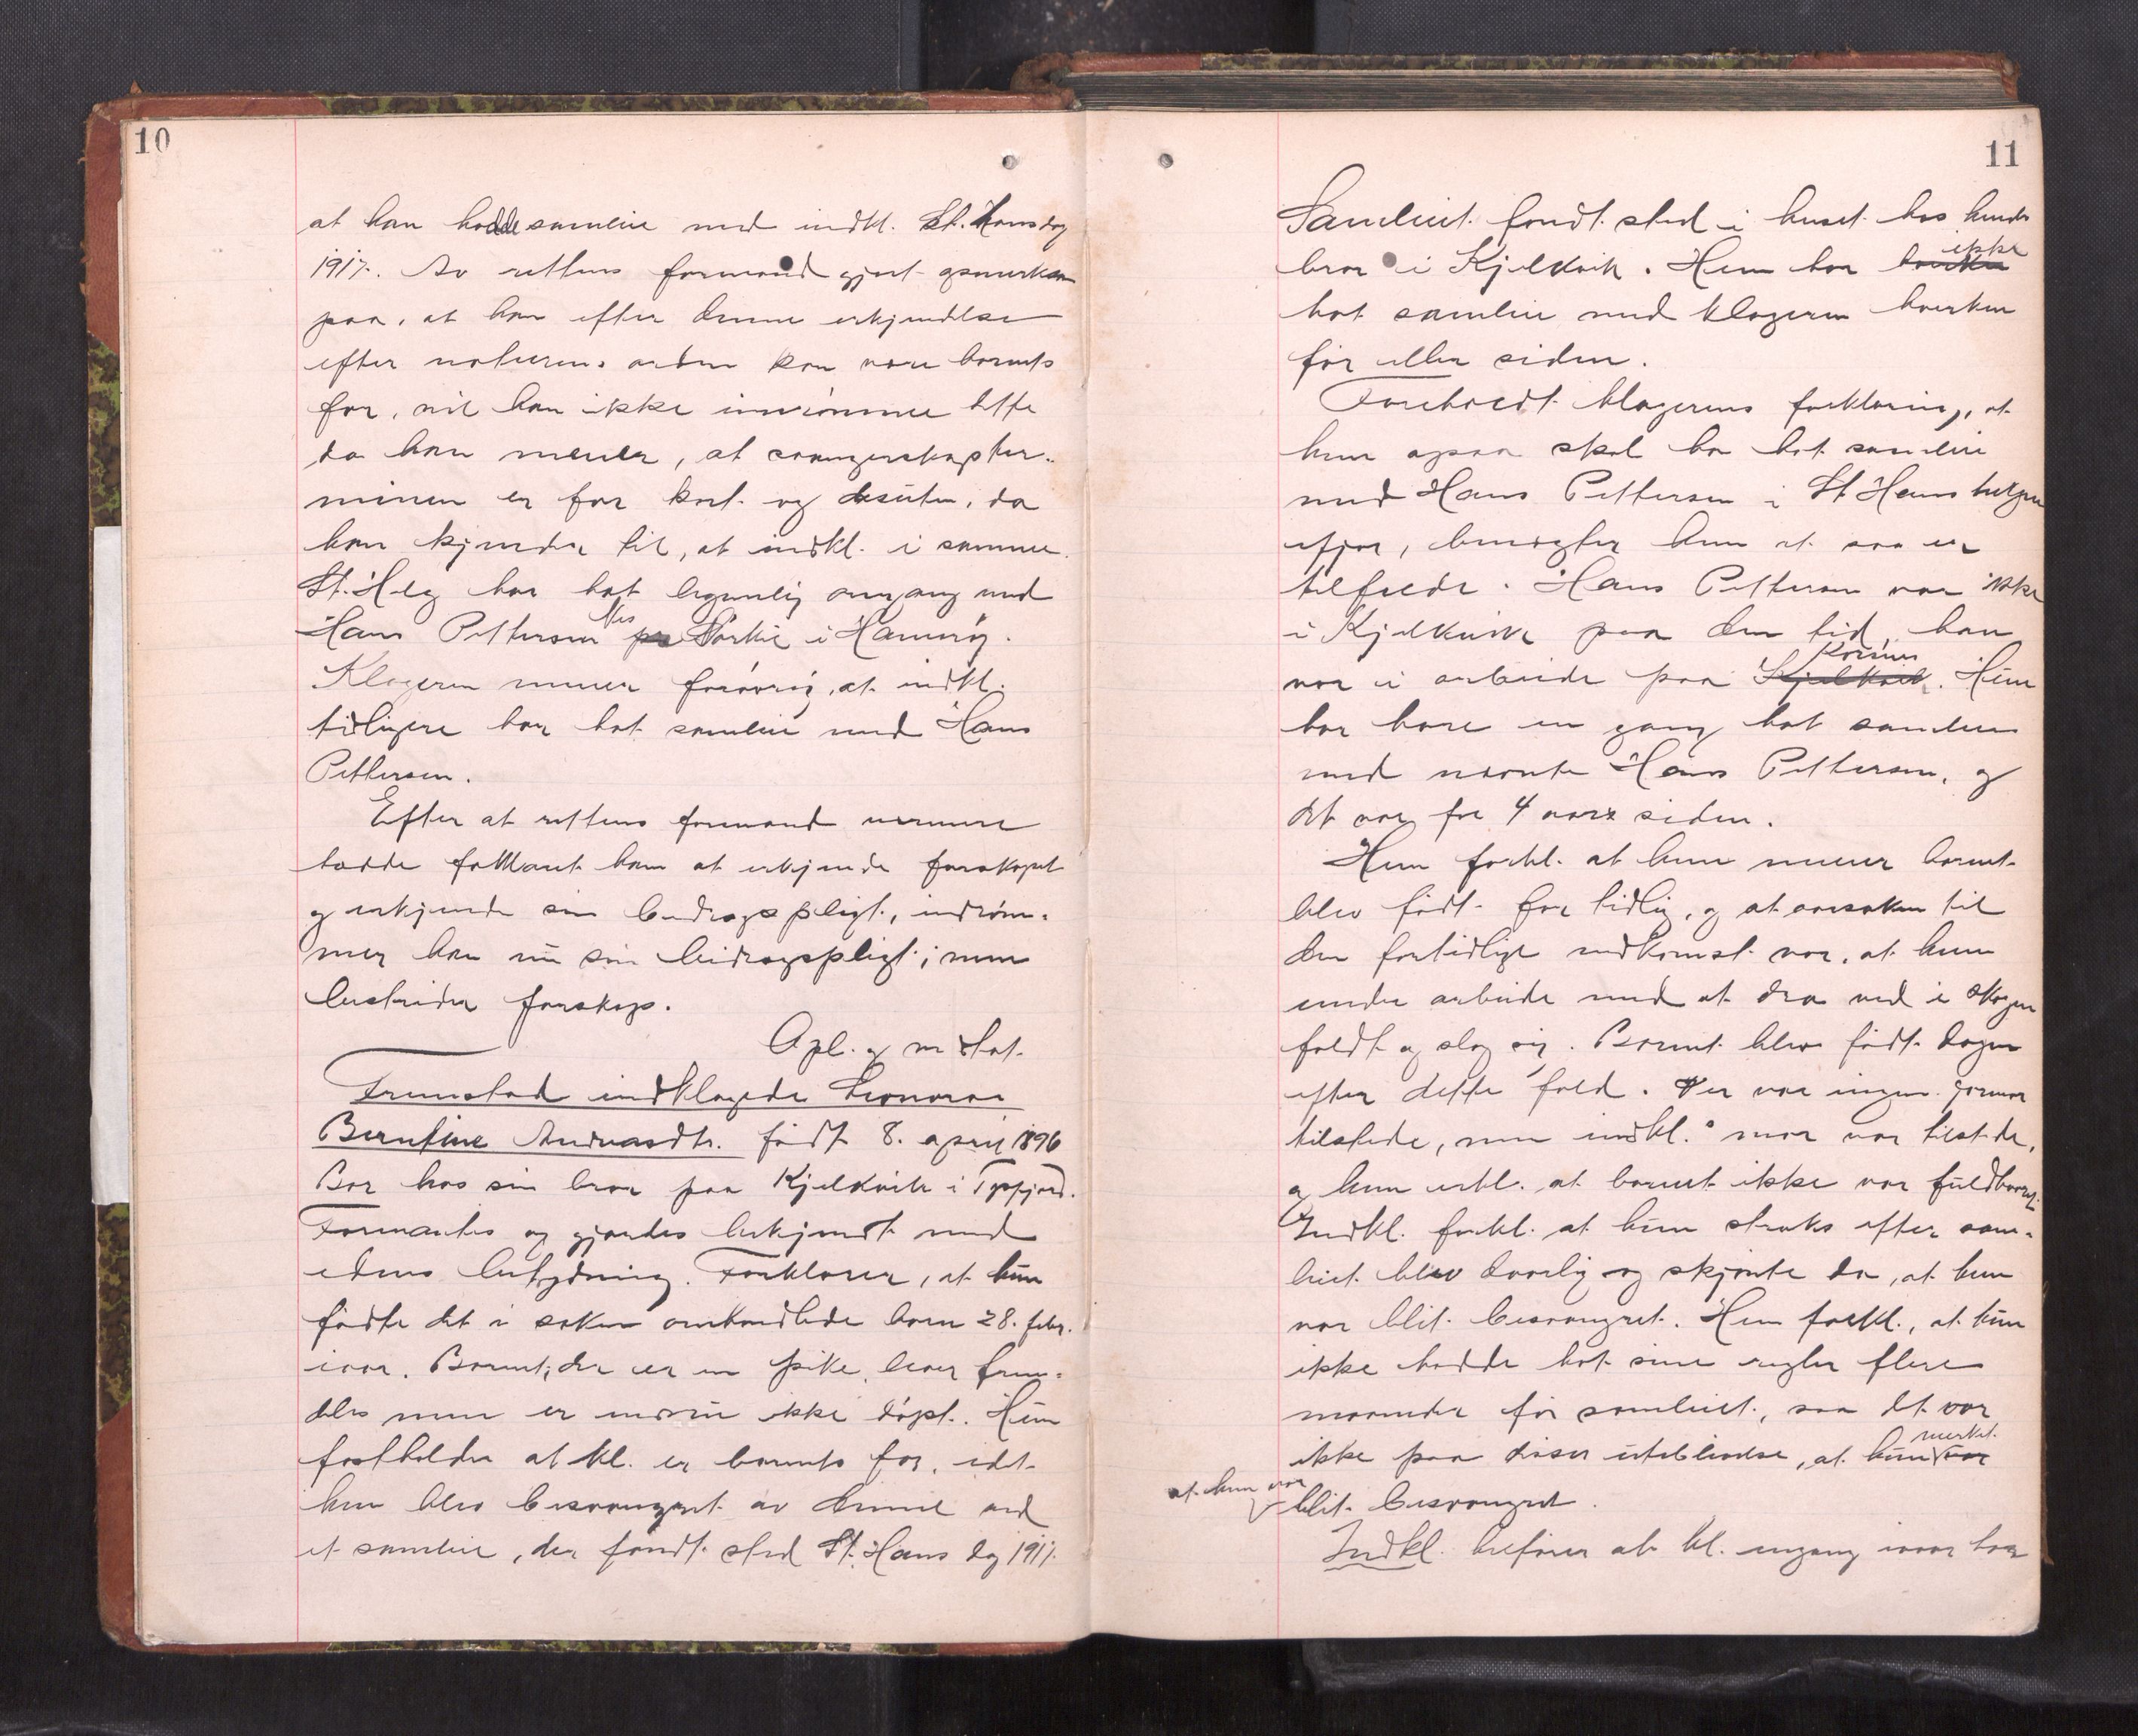 10
at han hadde samleie med indkl. St. Hansdag
1917. Av rettens formand gjort opmerksom
paa, at han efter denne erkjendelse
efter naturens orden kan være barnets
far, vil han ikke inrømme dette
da han mener, at svangerskapster-
minen er for kort og desuten, da
han kjender til, at indkl. i samme
St. H elg har hat legemlig omgang med
Hans Pettersen Nes pr Størkie i Hamarøy.
Klageren mener forøvrig, at indkl.
tidligere har hat samleie med Hans
Pettersen.
Efter at rettens formand nærmere
hadde forklaret ham at erkjende farskapet
og erkjende sin bidragspligt, indrøm-
mer han nu sin bidragspligt; men
bestrider farskap.
Opl. og vedtat.
Fremstod indklagede Leonora
Berntine Andreasdtr. født 8. april 1896
Bor hos sin bror paa Kjelkvik i Tysfjord.
Formantes og gjordes bekjendt med
edens betydning. Forklarer, at hun
fødte det i saken omhandlede barn 28. febr.
iaar. Barnet, der er en pike, lever frem-
deles men er endnu ikke døpt. Hun
fastholder at kl. er barnets far, idet
hun blev besvangret av denne ved
et samleie, der fandt sted St. Hans dag 1917.
11
Samleiet fandt sted i huset hos hendes
bror i Kjelkvik. Hun har hverken ikke
hat samleie med klageren hverken
før eller siden.
Foreholdt klagerens forklaring, at
hun ogsaa skal ha hat samleie
med Hans Pettersen i St Hans helgen
ifjor, benegter hun at saa er
tilfælde. Hans Pettersen var ikke
i Kjelkvik paa den tid, han
var i arbeide paa Kjelkvik Korsnes. Hun
har bare en gang hat samleie
med nævnte Hans Pettersen, og
det var for 4 aar siden.
Hun forkl. at hun mener barnet
blev født for tidlig, og at aarsaken til
den fortidlige nedkomst var, at hun
under arbeide med at dra ved i skogen
faldt og slog sig. Barnet blev født dagen
efter dette fald. Der var ingen jormor
tilstede, men indkl.s mor var tilstede,
og hun erkl. at barnet ikke var fuldbaaret.
Indkl. forkl. at hun straks efter sam-
leiet blev daarlig og skjønte da, at hun
var blit besvangret. Hun forkl., at hun
ikke hadde hat sine regler flere
maaneder før samleiet, saa det var
ikke paa disses uteblivelse, at hun var merket
at hun var blit besvangret.
Indkl. anfører at kl. engang iaar har